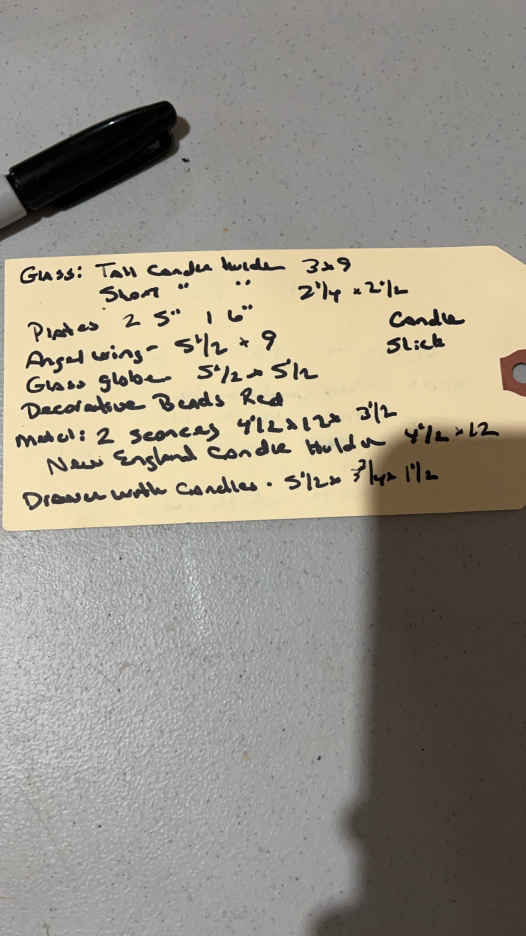 Glass: Tall Candle holder 3x9
Short " " 2 1/4 x 2 1/2
Plates 2 5" 1 6"
Candle
Stick
Angel wing - 5 1/2 x 9
Glass globe 5 1/2 x 5 1/2
Decorative Beads Red
Metal: 2 sconces 4 1/2 x 12 x 3 1/2
New England Candle Holder 4 1/2 x 12
Drawer with Candles - 5 1/2 x x 1 1/2